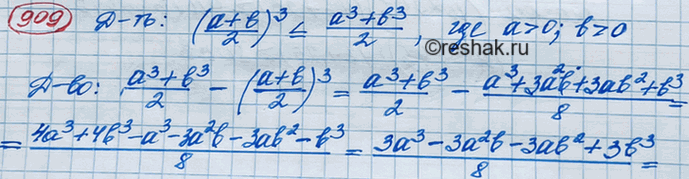 909 Д-ть: ((a+b)/2)³ ≤ (a³+b³)/2, где a>0; b>0
©reshak.ru
Д-во: (a³+b³)/2 - ((a+b)/2)³ = (a³+b³)/2 - (a³+3a²b+3ab²+b³)/8 =
= (4a³+4b³-a³-3a²b-3ab²-b³)/8 = (3a³-3a²b-3ab²+3b³)/8 =